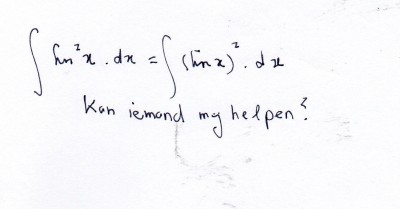 ∫ sin²x . dx = ∫ (sin x)² . dx
Kan iemand my helpen?